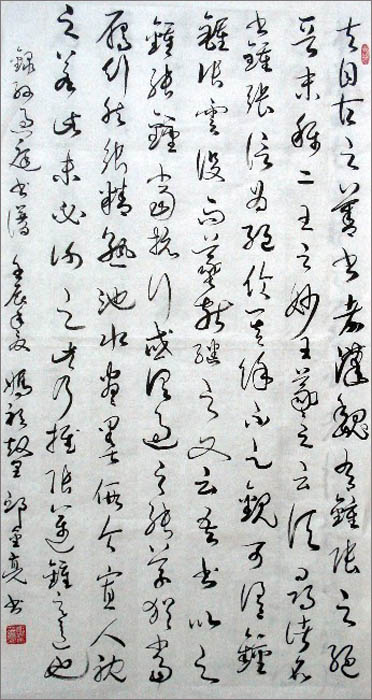 夫自古之善书者漢魏有鍾张之絕
晉末稱二王之妙王羲之云頃尋諸名
书鍾張信为絕伦其餘不足觀可谓鍾
鍾張雲没而羲献繼之又云吾书比之
鍾張鍾當抗行或谓過之張草猶當
雁行然張精熟池水盡墨假令寡人耽
之若此未必谢之此乃推張邁鍾之意也
錄孫過庭书譜 壬辰年夏 嫘祖故里 金亮书